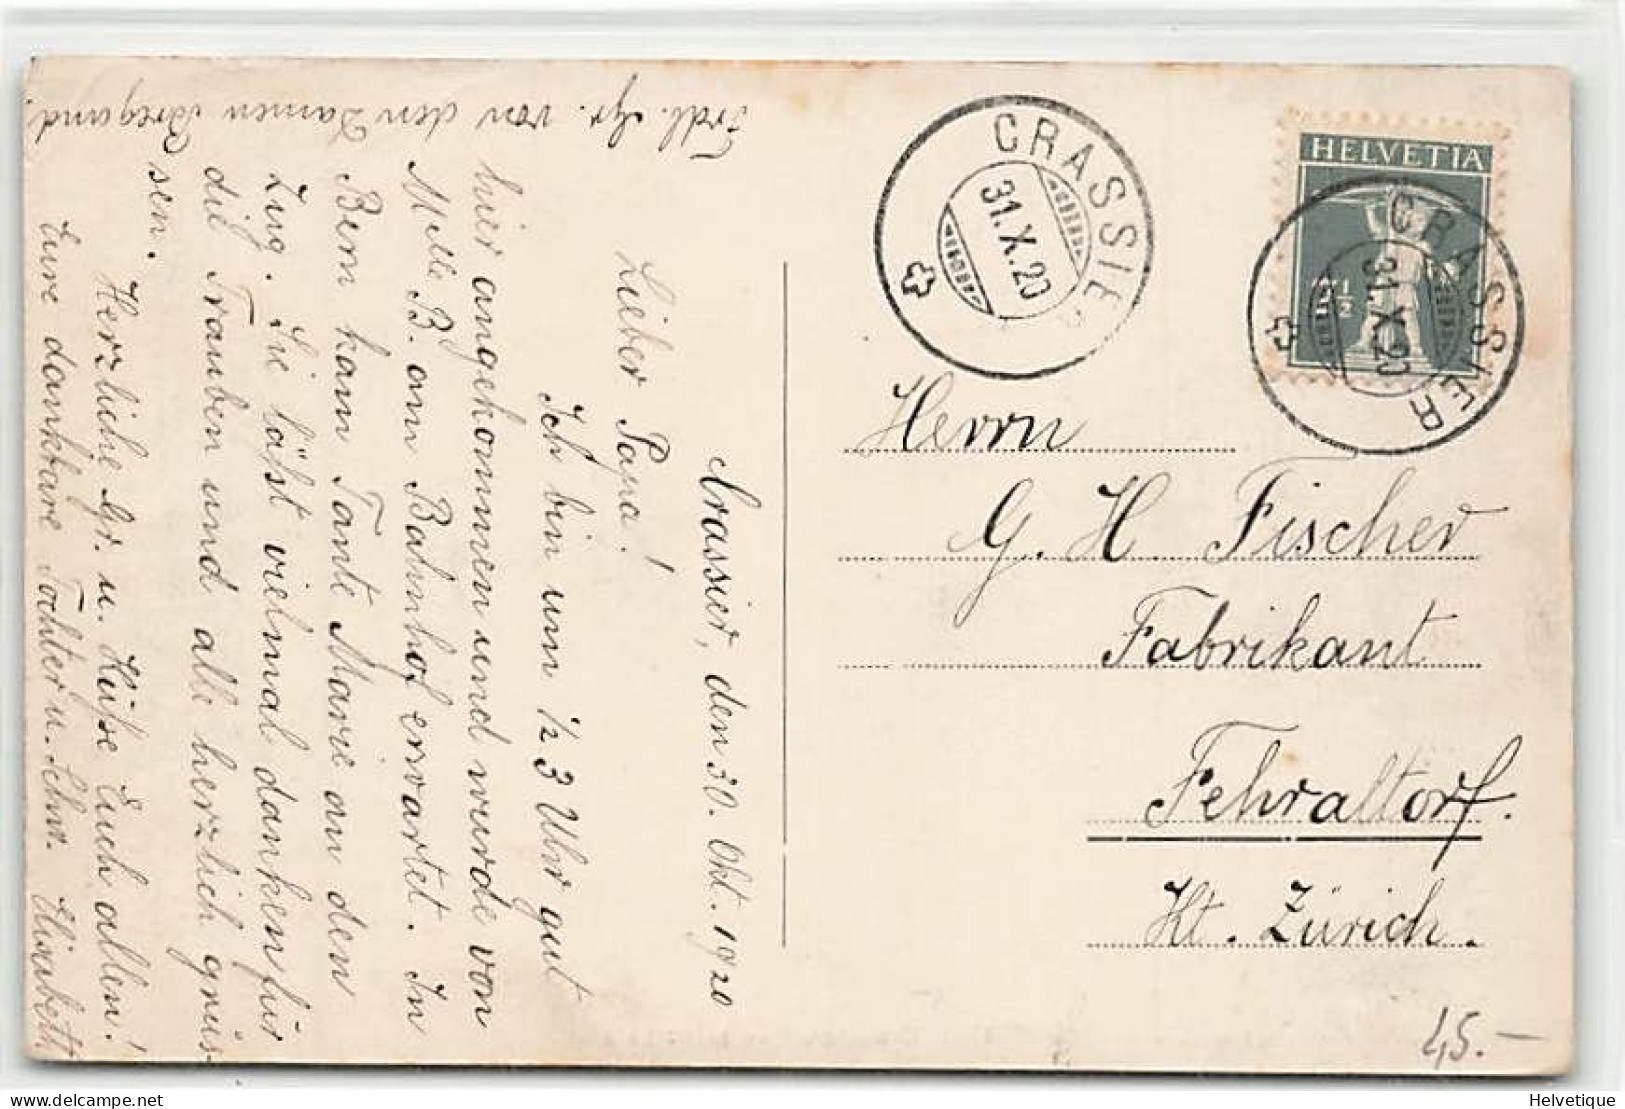 Crassier, den 30. Okt. 1920
Lieber Papa!
Ich bin um 1/2 3 Uhr gut
hier angekommen und wurde von
Melle B. am Bahnhof erwartet. In
Bern kam Tante Marie an den
Zug. Sie läßt vielmal danken für
die Trauben und alle herzlich grüs-
sen.
Herzliche Gr. u. Küße Euch allen!
Eure dankbare Tochter u. Schw.
Frdl. Gr. von den Damen
CRASSIER
31.X.20
HELVETIA
7 1/2
CRASSIER
31.X.20
Herrn
G. H. Fischer
Fabrikant
Fehraltorf.
Kt. Zürich.
45.-
Helvetique